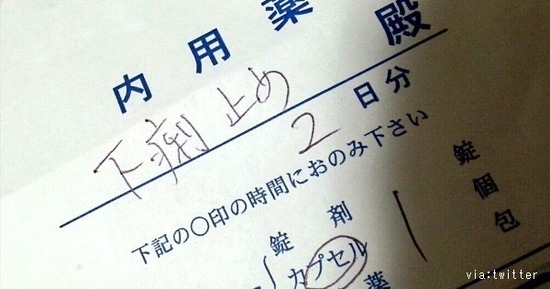 殿
内用薬
下痢止め 2 日分
下記の〇印の時間におのみ下さい
錠剤 錠
カプセル 個
薬 包
via:twitter